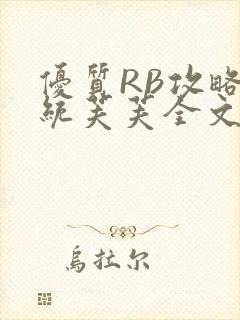 優質RB攻略
統芙芙全文
烏拉尔